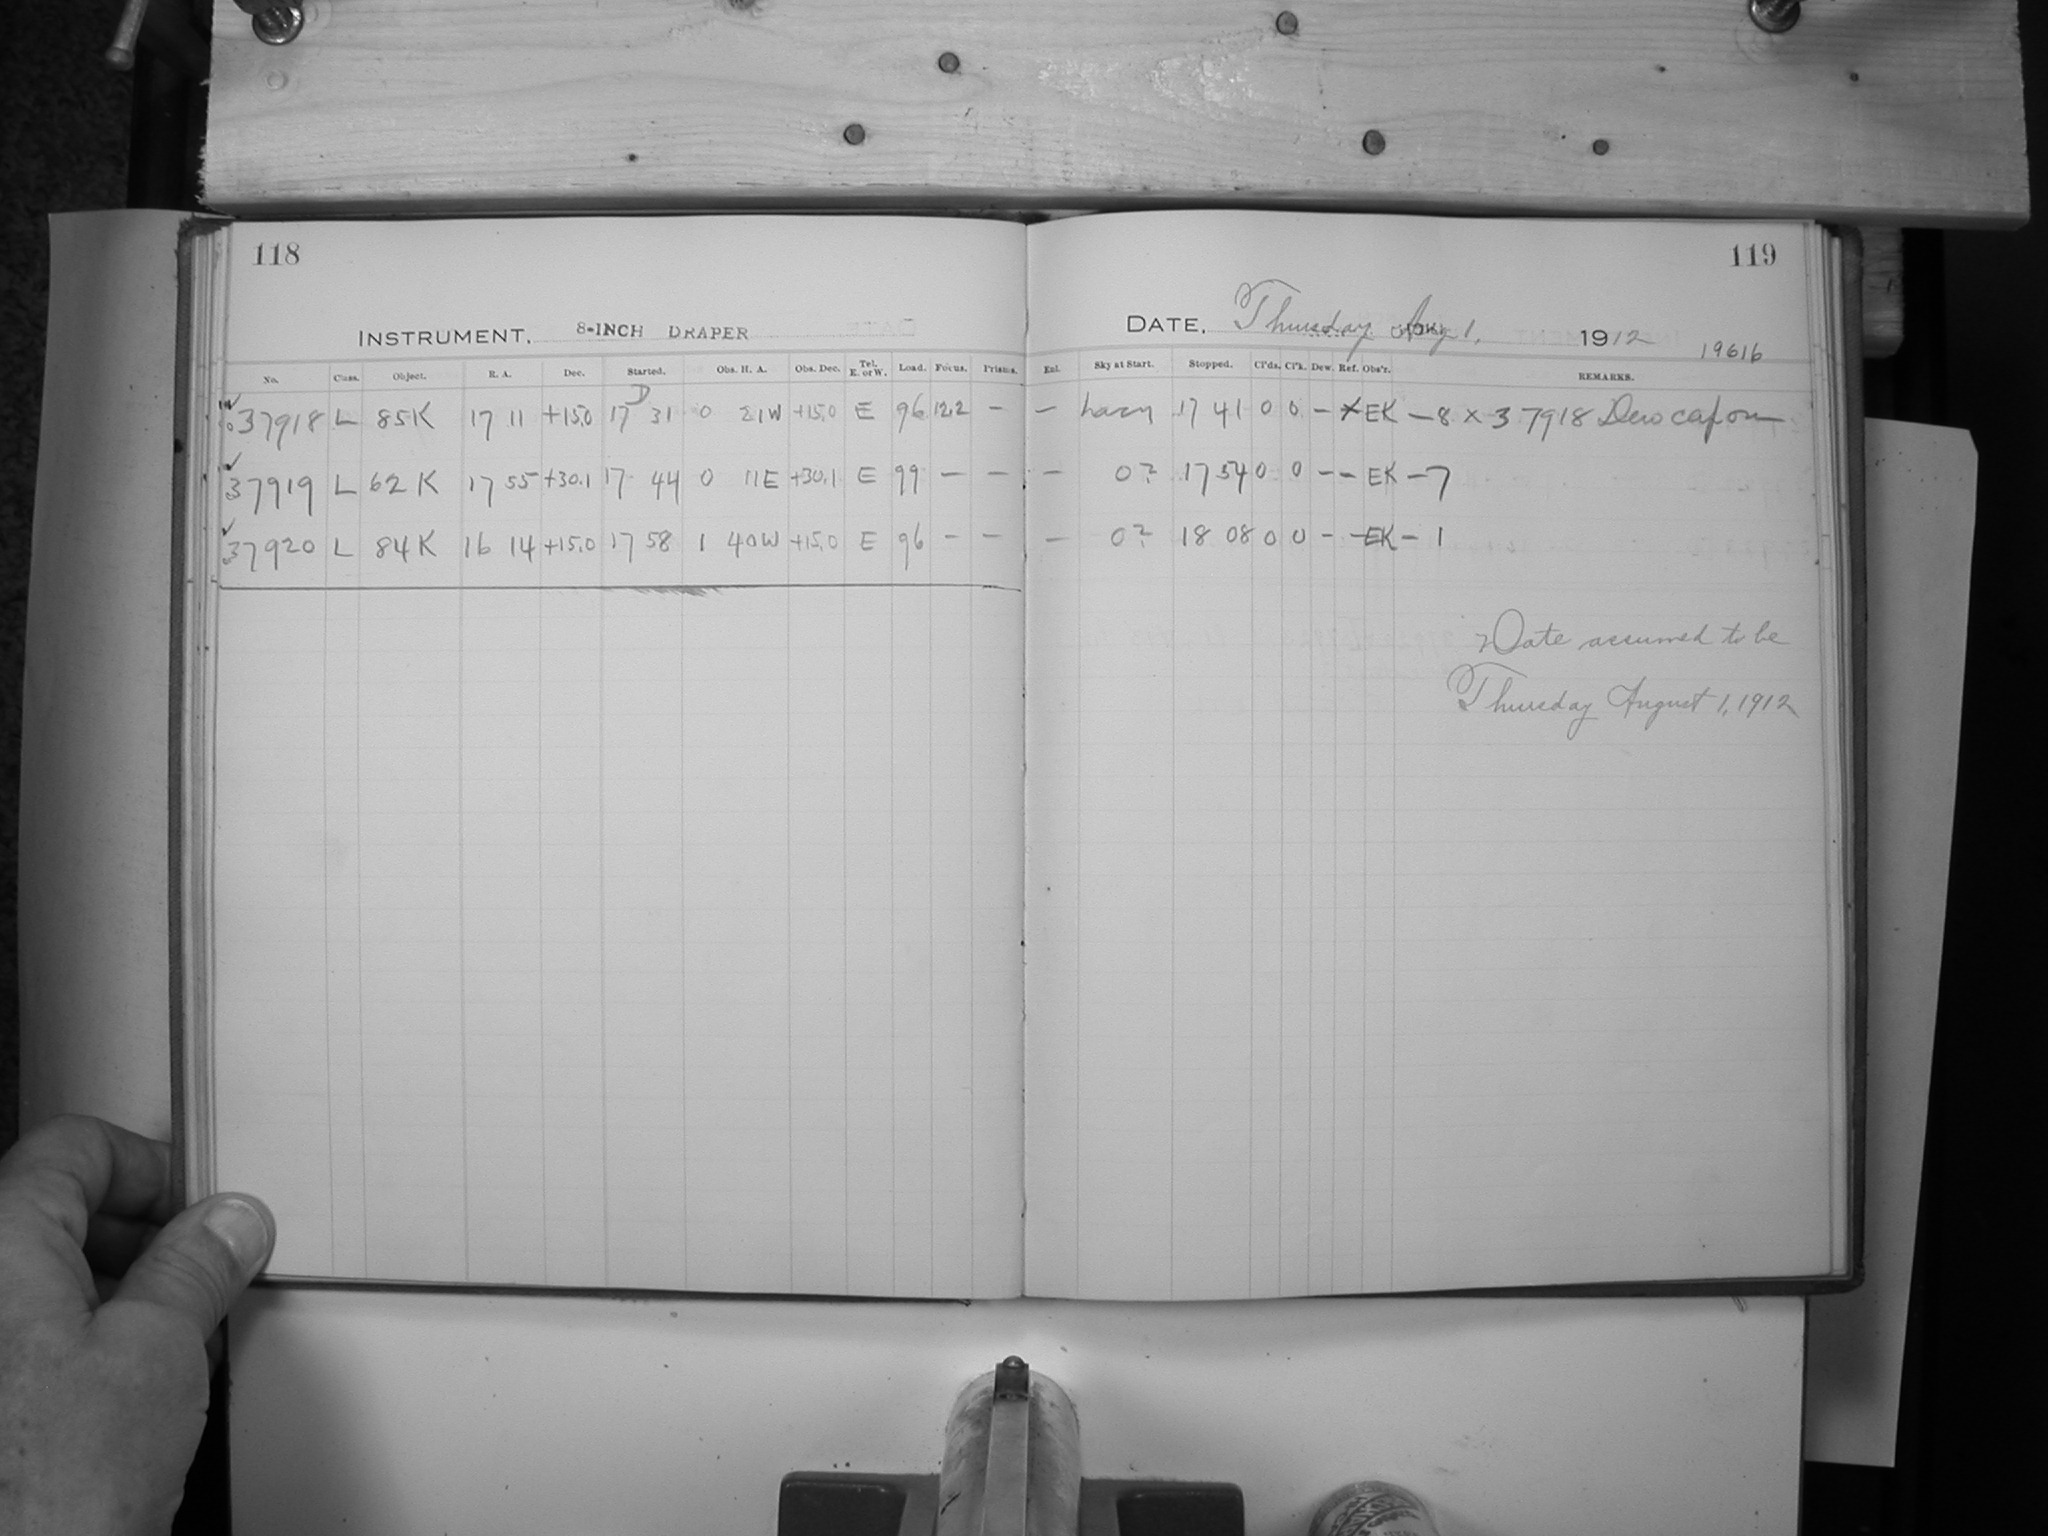 118
INSTRUMENT, 8-INCH DRAPER
No. Class. Object. R. A. Dec. Started. Obs. H. A. Obs. Dec. Tel. E. or W. Load. Focus. Prisms.
37918 L 85K 17 11 +15.0 17 31 0 21W +15.0 E 96 12.2 –
37919 L 62K 17 55 +30.1 17 44 0 11E +30.1 E 99 – –
37920 L 84K 16 14 +15.0 17 58 1 40W +15.0 E 96 – –
119
DATE, Thursday Aug 1, 1912
19616
Enl. Sky at Start. Stopped. Cl'ds. Cl'k. Dew. Ref. Obs'r. REMARKS.
– hazy 17 41 0 0 – × EK – 8 × 37918 Dew cap on
– 0? 17 54 0 0 – – EK – 7
– 0? 18 08 0 0 – – EK – 1
Date assumed to be
Thursday August 1, 1912